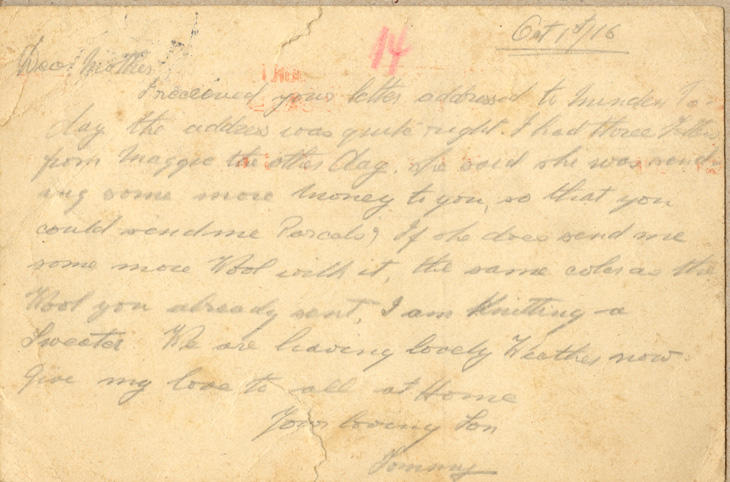 Oct 1st/16
14
Dear Mother
I received your letter addressed to Minden To-
day the address was quite right. I had three letters
from Maggie the other day. she said she was send
ing some more money to you, so that you
could send me Parcels? If she does send me
some more Wool with it, the same color as the
Wool you already sent, I am Knitting a
Sweater We are having lovely Weather now
Give my love to all at Home
Your loving Son
Tommy